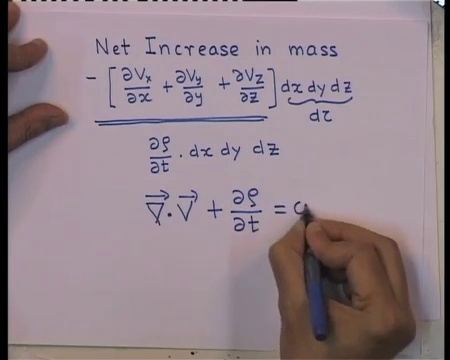 Net Increase in mass
- [ ∂Vx/∂x + ∂Vy/∂y + ∂Vz/∂z ] dx dy dz
dτ
∂ρ/∂t . dx dy dz
∇⃗ · V⃗ + ∂ρ/∂t =